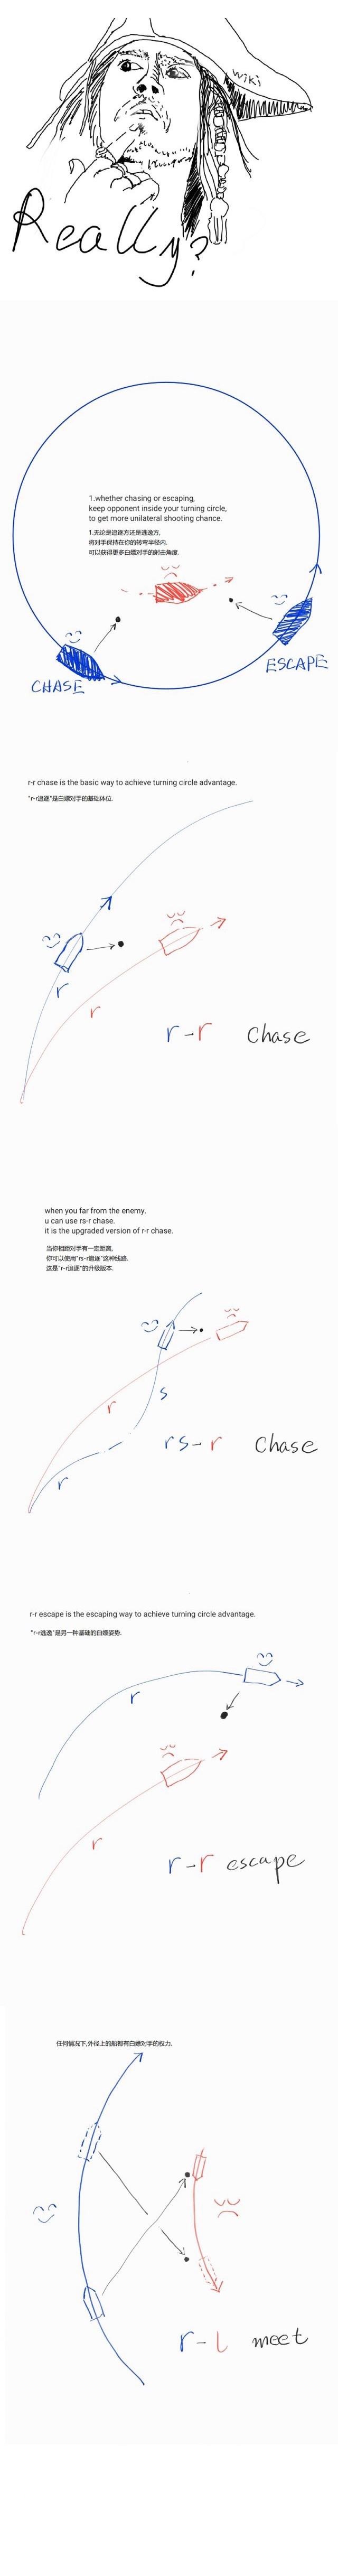 wiki
Really?
1.whether chasing or escaping,
keep opponent inside your turning circle,
to get more unilateral shooting chance.
1.无论是追逐方还是逃逸方,
将对手保持在你的转弯半径内.
可以获得更多白嫖对手的射击角度.
CHASE
ESCAPE
r-r chase is the basic way to achieve turning circle advantage.
"r-r追逐"是白嫖对手的基础体位.
r
r
r-r chase
when you far from the enemy.
u can use rs-r chase.
it is the upgraded version of r-r chase.
当你相距对手有一定距离,
你可以使用"rs-r追逐"这种线路.
这是"r-r追逐"的升级版本.
r
s
r
rs-r chase
r-r escape is the escaping way to achieve turning circle advantage.
"r-r逃逸"是另一种基础的白嫖姿势.
r
r
r-r escape
任何情况下,外径上的船都有白嫖对手的权力.
r-l meet